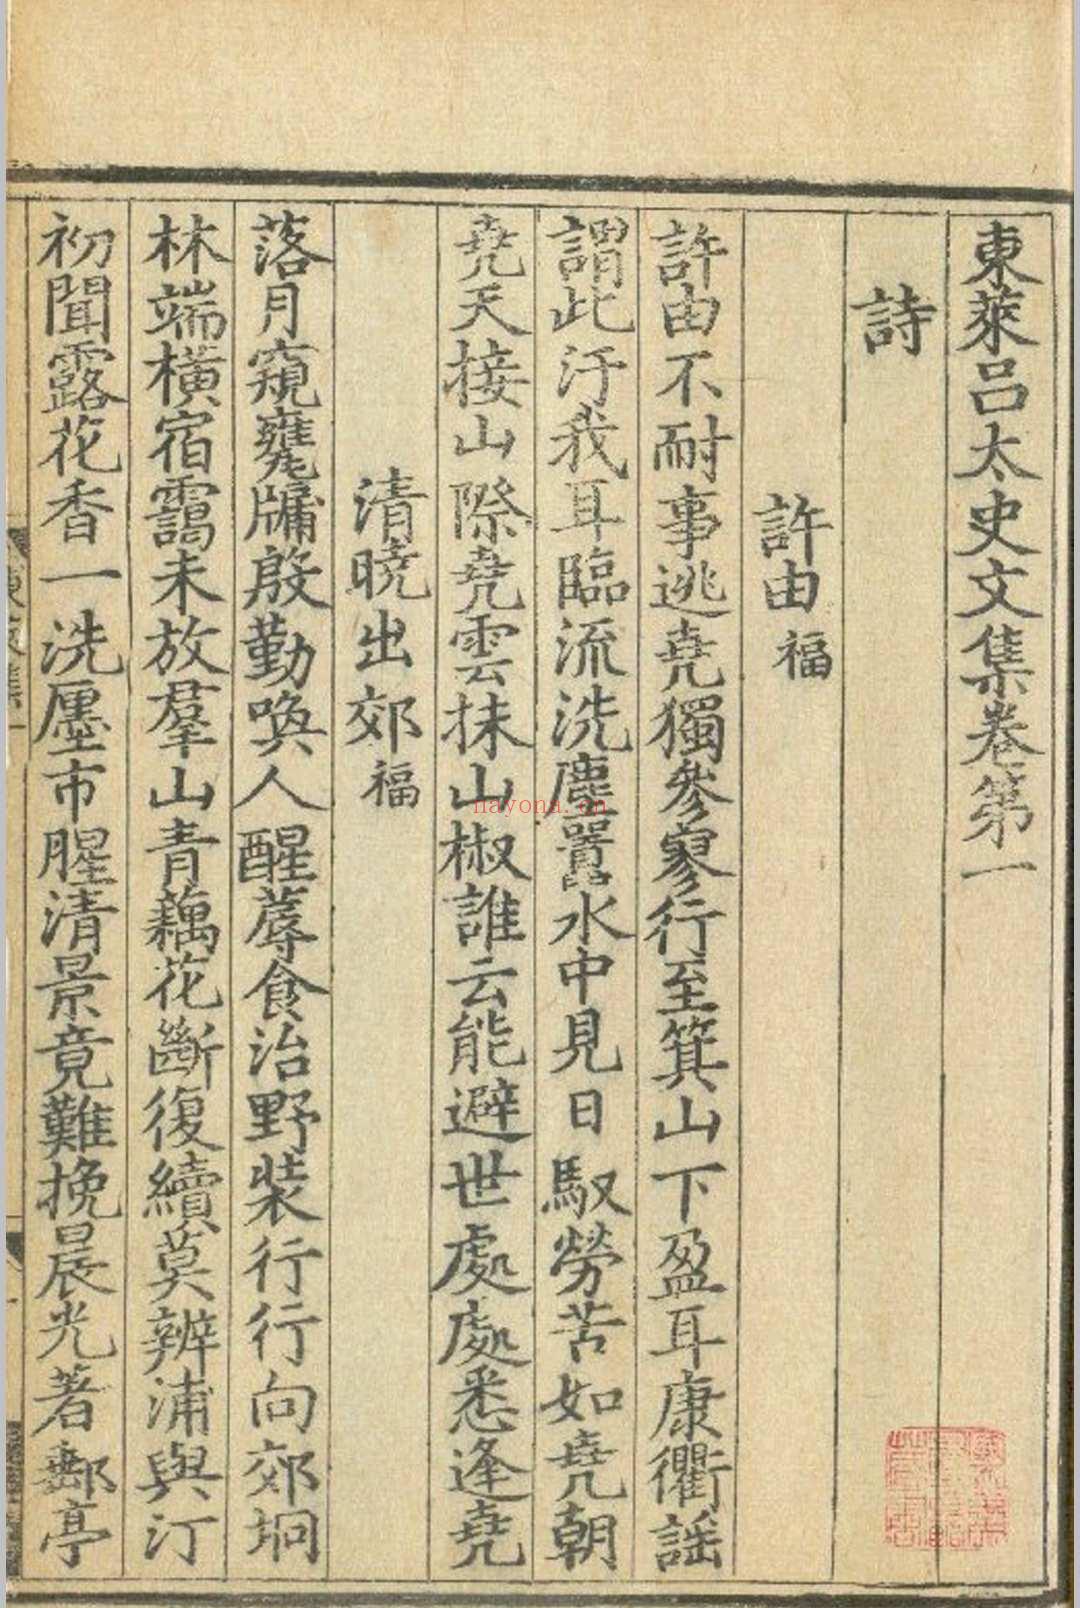 東萊呂太史文集卷第一
詩
許由福
許由不耐事逃堯獨參寥行至箕山下盈耳康衢謡
謂此汙我耳臨流洗塵嚻水中見日馭勞苦如堯朝
堯天接山際堯雲抹山椒誰云能避世處處悉逢堯
清曉出郊福
落月窺甕牖殷勤喚人醒蓐食治野裝行行向郊坰
林端橫宿靄未放羣山青藕花斷復續莫辨浦與汀
初聞露花香一洗㕓市腥清景竟難挽晨光著郵亭
nayona.cn